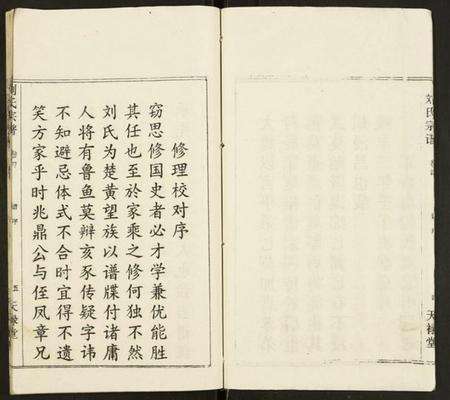 修理校对序
窃思修国史者必才学兼优能胜
其任也至於家乘之修何独不然
刘氏为楚黄望族以谱牒付诸庸
人将有鲁鱼莫辨亥豕传疑字讳
不知避忌体式不合时宜得不遗
笑方家乎时兆鼎公与侄凤章兄
刘氏宗谱
五
天禄堂
刘氏宗谱
天禄堂